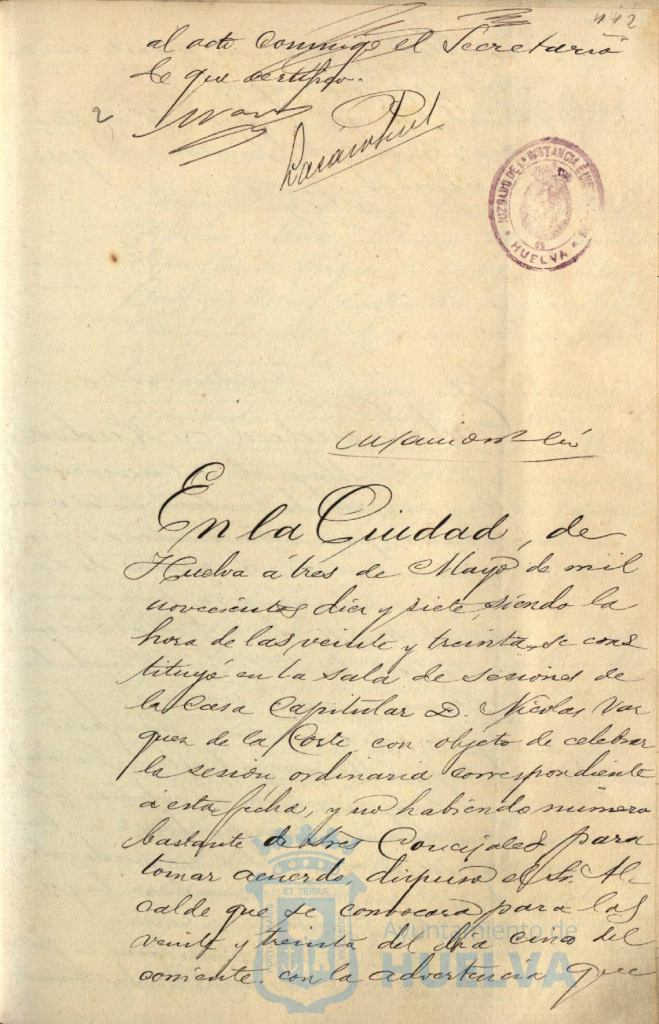 142
al acto conmigo el Secretario
de que certifico.
2
JUZGADO DE 1ª INSTANCIA É INS
HUELVA
En la Ciudad, de
Huelva á tres de Mayo de mil
novecientos diez y siete, siendo la
hora de las veinte y treinta, se cons
tituyó en la sala de sesiones de
la Casa Capitular D. Nicolas Vaz
quez de la Corte con objeto de celebrar
la sesion ordinaria correspondiente
á esta fecha, y no habiendo número
bastante de Sres Concejales para
tomar acuerdo, dispuso el Sr. Al-
calde que se convocara para las
veinte y treinta del dia cinco del
corriente, con la advertencia que
ET TERRÆ
Ayuntamiento de
HUELVA